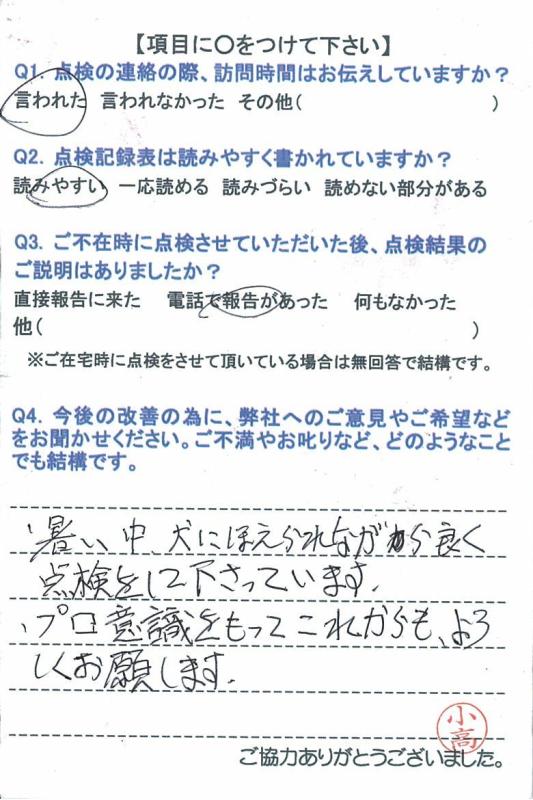 【項目に〇をつけて下さい】
Q1. 点検の連絡の際、訪問時間はお伝えしていますか?
言われた 言われなかった その他( )
Q2. 点検記録表は読みやすく書かれていますか?
読みやすい 一応読める 読みづらい 読めない部分がある
Q3. ご不在時に点検させていただいた後、点検結果の
ご説明はありましたか?
直接報告に来た 電話で報告があった 何もなかった
他( )
※ご在宅時に点検をさせて頂いている場合は無回答で結構です。
Q4. 今後の改善の為に、弊社へのご意見やご希望など
をお聞かせください。ご不満やお叱りなど、どのようなこと
でも結構です。
・暑い中、犬にほえられながら良く
点検をして下さっています。
・プロ意識をもってこれからも、よろ
しくお願します。
小高
ご協力ありがとうございました。